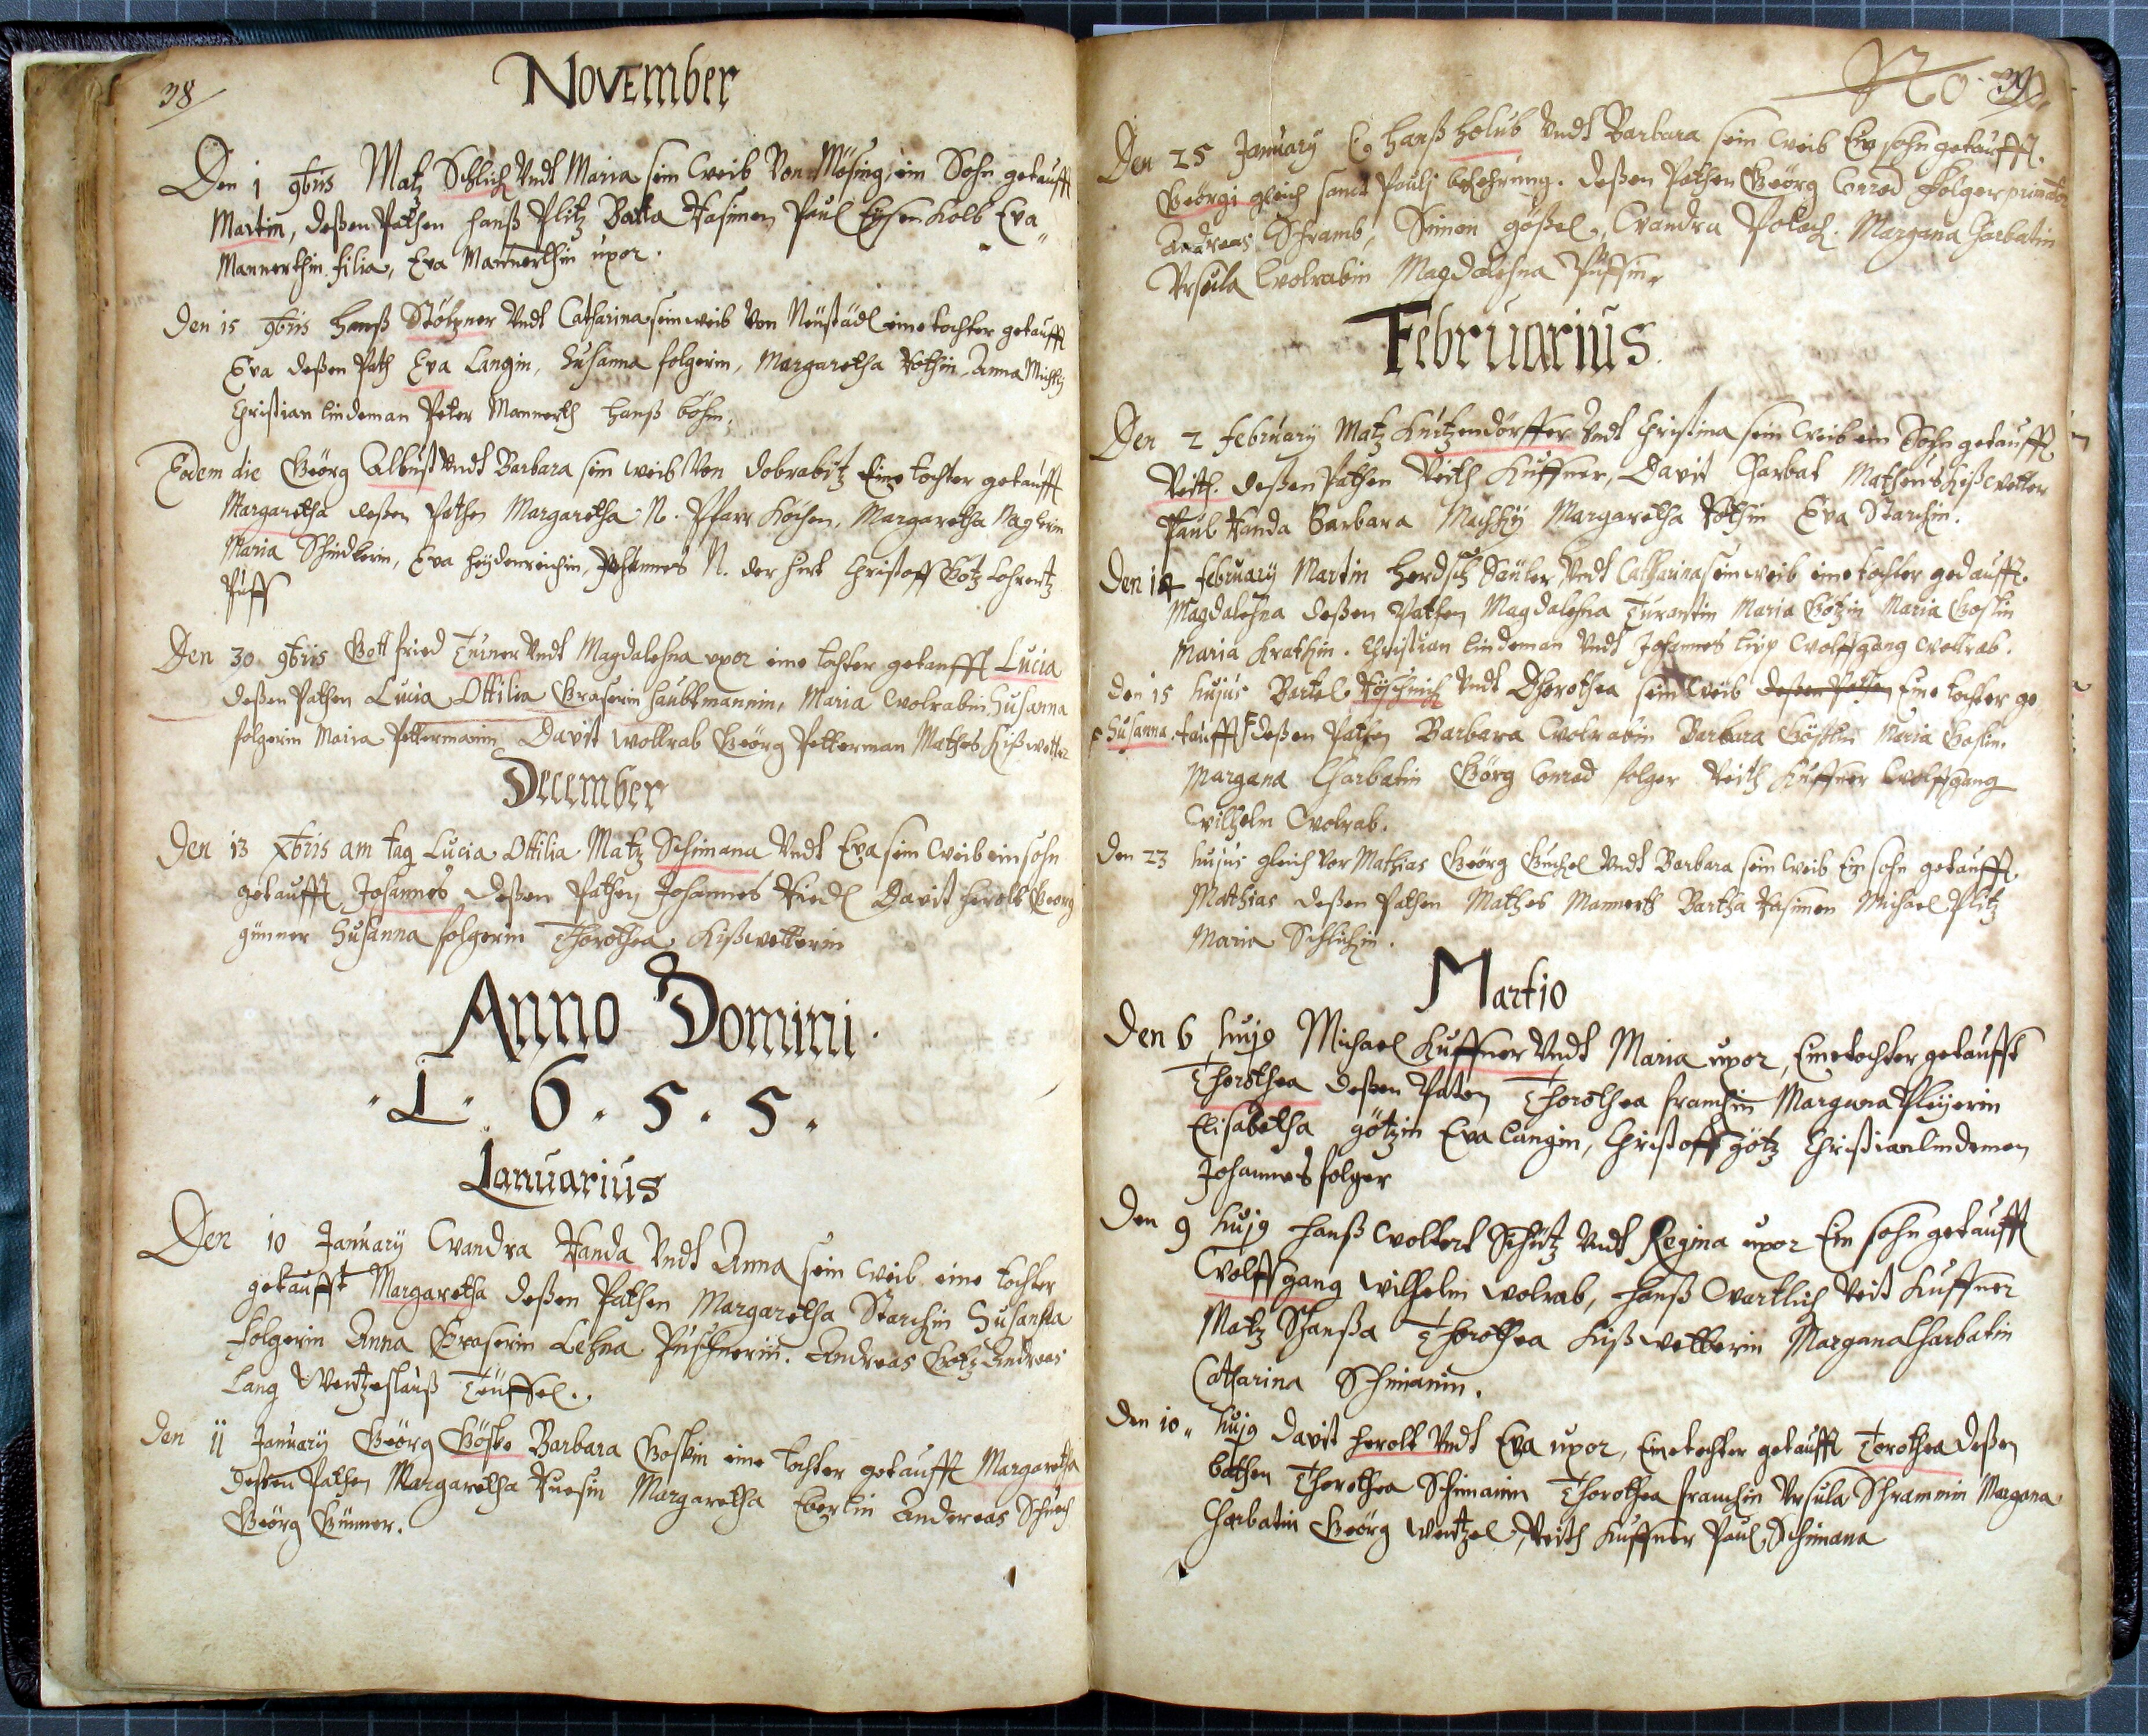 38
November
Den 1 9bris Matz Schlich Vndt Maria sein weib Von Mösing, ein Sohn getaufft
Martin, deßen Pathen Hanß Plitz Batta Kasimen Paul Eysenkolb Eva
Mannerthin filia, Eva Mannerthin uxor.
Den 15 9bris Hanß Stötzner Vndt Catharina sein weib Von Neustädl eine tochter getaufft
Eva deßen Path Eva Langin, Susanna folgerin, Margaretha Rothin, Anna
Christian lindeman Peter Mannerth Hanß böhm.
Eodem die Geörg Albust Vndt Barbara sein weib Von dobrabitz Eine tochter getaufft
Margaretha deßen Pathen Margaretha N. Pfarr Köchen, Margaretha Maglerin
Maria Schindlerin, Eva Heydenreichin, Johannes N. der hirt Christoff Götz Lohrentz
Puff
Den 30 9bris Gottfried Turner Vndt Magdalehna uxor eine tochter getaufft Lucia
deßen Pathen Lucia Ottilia Graserin Haubtmannin, Maria Wolrabin Susanna
folgerin Maria Pettermanin Davit Wollrab Geörg Petterman Mathes Kißwetter
December
Den 13 Xbris am tag Lucia Ottilia Matz Schimana Vndt Eva sein weib ein sohn
getaufft Johannes deßen Pathen Johannes Riedl Davit Herolt Georg
günner Susanna folgerin Thorothea Kißwetterin
Anno Domini
1. 6. 5. 5.
Ianuarius
Den 10 January Wandra Handa Vndt Anna sein weib eine tochter
getaufft Margaretha deßen Pathen Margaretha Starchin Susanna
folgerin Anna Graserin Lehna Puschnerin. Andreas Götz Andreas
Lang Wentzeslauß Teüffel.
Den 11 January Geörg Göske Barbara Goskin eine tochter getaufft Margaretha
deßen Pathen Margaretha Margaretha Ebertin Andereas
Geörg Günner.
39
Den 25 January Hanß Holub Vndt Barbara sein weib Ein sohn getaufft.
Geörgi gleich sanct Paulj bekehrung. deßen Pathen Geörg Conrad Folger
Andreas Schramb, Simon gößel, Wandra Polach. Margana Charbatin
Vrsula Wolrabin Magdalehna Puffin.
Februarius.
Den 2 february Matz Kutzendörffer Vndt Christina sein weib ein Sohn getaufft
Veith. deßen Pathen Veith Kuffner, Davit Charbat Matheus Kißwetter
Paul Handa Barbara Margaretha Rothin Eva Starchin.
Den 14 february Martin Herdsch Vndt Catharina sein weib eine tochter gedaufft.
Magdalehna deßen Pathen Magdalehna Maria Götzin Maria Goskin
Maria Krathin. Christian lindeman Vndt Johannes Wolffgang Wollrab.
Den 15 hujus Bartel Vndt Dhorothea sein weib deßen Pathen Eine tochter ge
Susanna. taufft deßen Pathen Barbara Wolrabin Barbara Maria Goskin.
Margana Charbatin Görg Conrad folger Veith Kuffner Wolffgang
Wilhelm Wolrab.
Den 23 hujus gleich Vor Mathias Geörg Vndt Barbara sein weib Ein sohn getaufft
Mathias deßen Pathen Mathes Mannerth Bartha Kasimen Michael Plitz
Maria Schlichin.
Martio
Den 6 hujg Michael Kuffner Vndt Maria uxor, Eine tochter getaufft
Thorothea deßen Paten Thorothea franchin Margana
Elisabetha götzin Eva Langin, Christoff götz Christian lindemen
Johannes folger
Den 9 hujg Hanß Wolkert Schutz Vndt Regina uxor Ein sohn getaufft
Wolffgang Wilhelm Wolrab, Hanß Veit Kuffner
Matz Thorothea Kißwetterin Margana Charbatin
Catharina Schimanin.
Den 10. hujg Davit Herolt Vndt Eva uxor, Eine tochter getaufft Torothea deßen
bathen Thorothea Schimanin Thorothea franchin Vrsula Schrammin Margana
Charbatin Geörg Wentzel, Veith Kuffner Paul Schimana